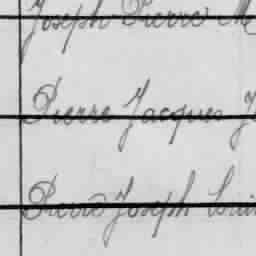 Joseph Pierre M
Pierre Jacques J
Pierre Joseph Loui